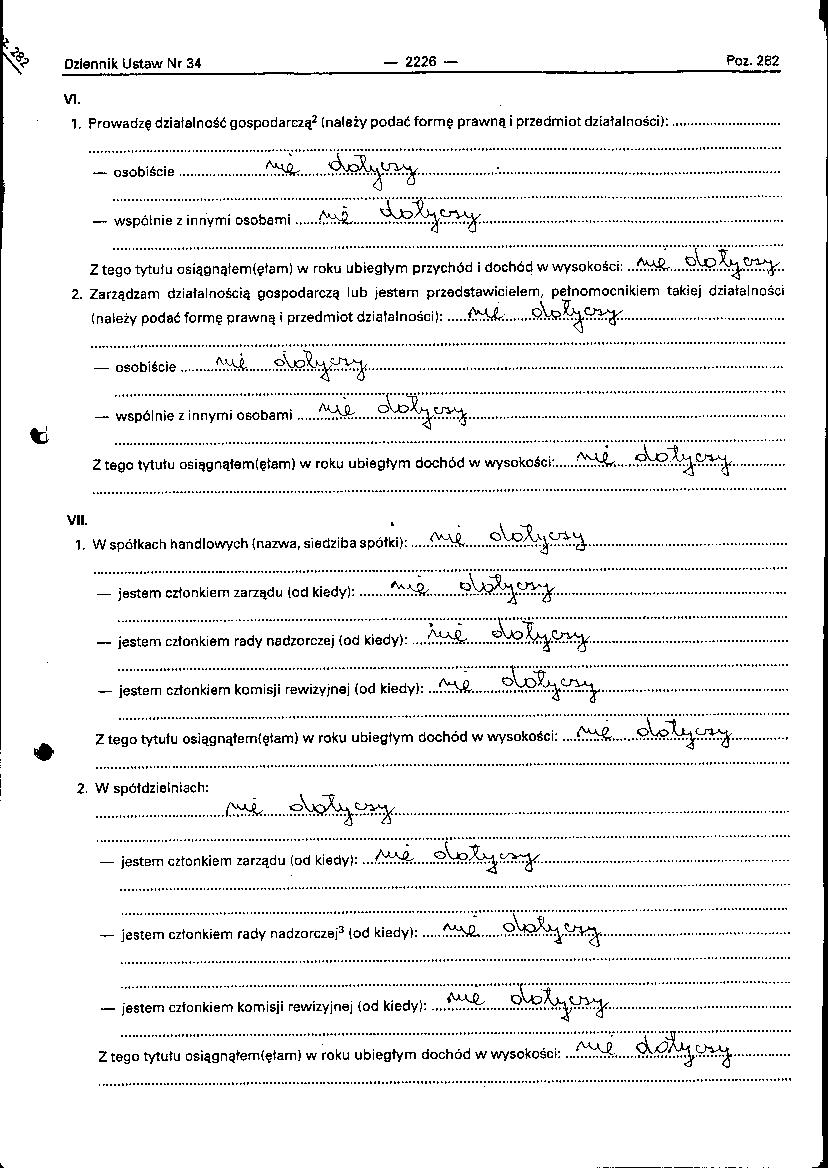 z. 282
Dziennik Ustaw Nr 34 — 2226 — Poz. 282
VI.
1. Prowadzę działalność gospodarczą² (należy podać formę prawną i przedmiot działalności):
— osobiście nie dotyczy
— wspólnie z innymi osobami nie dotyczy
Z tego tytułu osiągnąłem(ęłam) w roku ubiegłym przychód i dochód w wysokości: nie dotyczy
2. Zarządzam działalnością gospodarczą lub jestem przedstawicielem, pełnomocnikiem takiej działalności
(należy podać formę prawną i przedmiot działalności): nie dotyczy
— osobiście nie dotyczy
— wspólnie z innymi osobami nie dotyczy
Z tego tytułu osiągnąłem(ęłam) w roku ubiegłym dochód w wysokości: nie dotyczy
VII.
1. W spółkach handlowych (nazwa, siedziba spółki): nie dotyczy
— jestem członkiem zarządu (od kiedy): nie dotyczy
— jestem członkiem rady nadzorczej (od kiedy): nie dotyczy
— jestem członkiem komisji rewizyjnej (od kiedy): nie dotyczy
Z tego tytułu osiągnąłem(ęłam) w roku ubiegłym dochód w wysokości: nie dotyczy
2. W spółdzielniach:
nie dotyczy
— jestem członkiem zarządu (od kiedy): nie dotyczy
— jestem członkiem rady nadzorczej³ (od kiedy): nie dotyczy
— jestem członkiem komisji rewizyjnej (od kiedy): nie dotyczy
Z tego tytułu osiągnąłem(ęłam) w roku ubiegłym dochód w wysokości: nie dotyczy